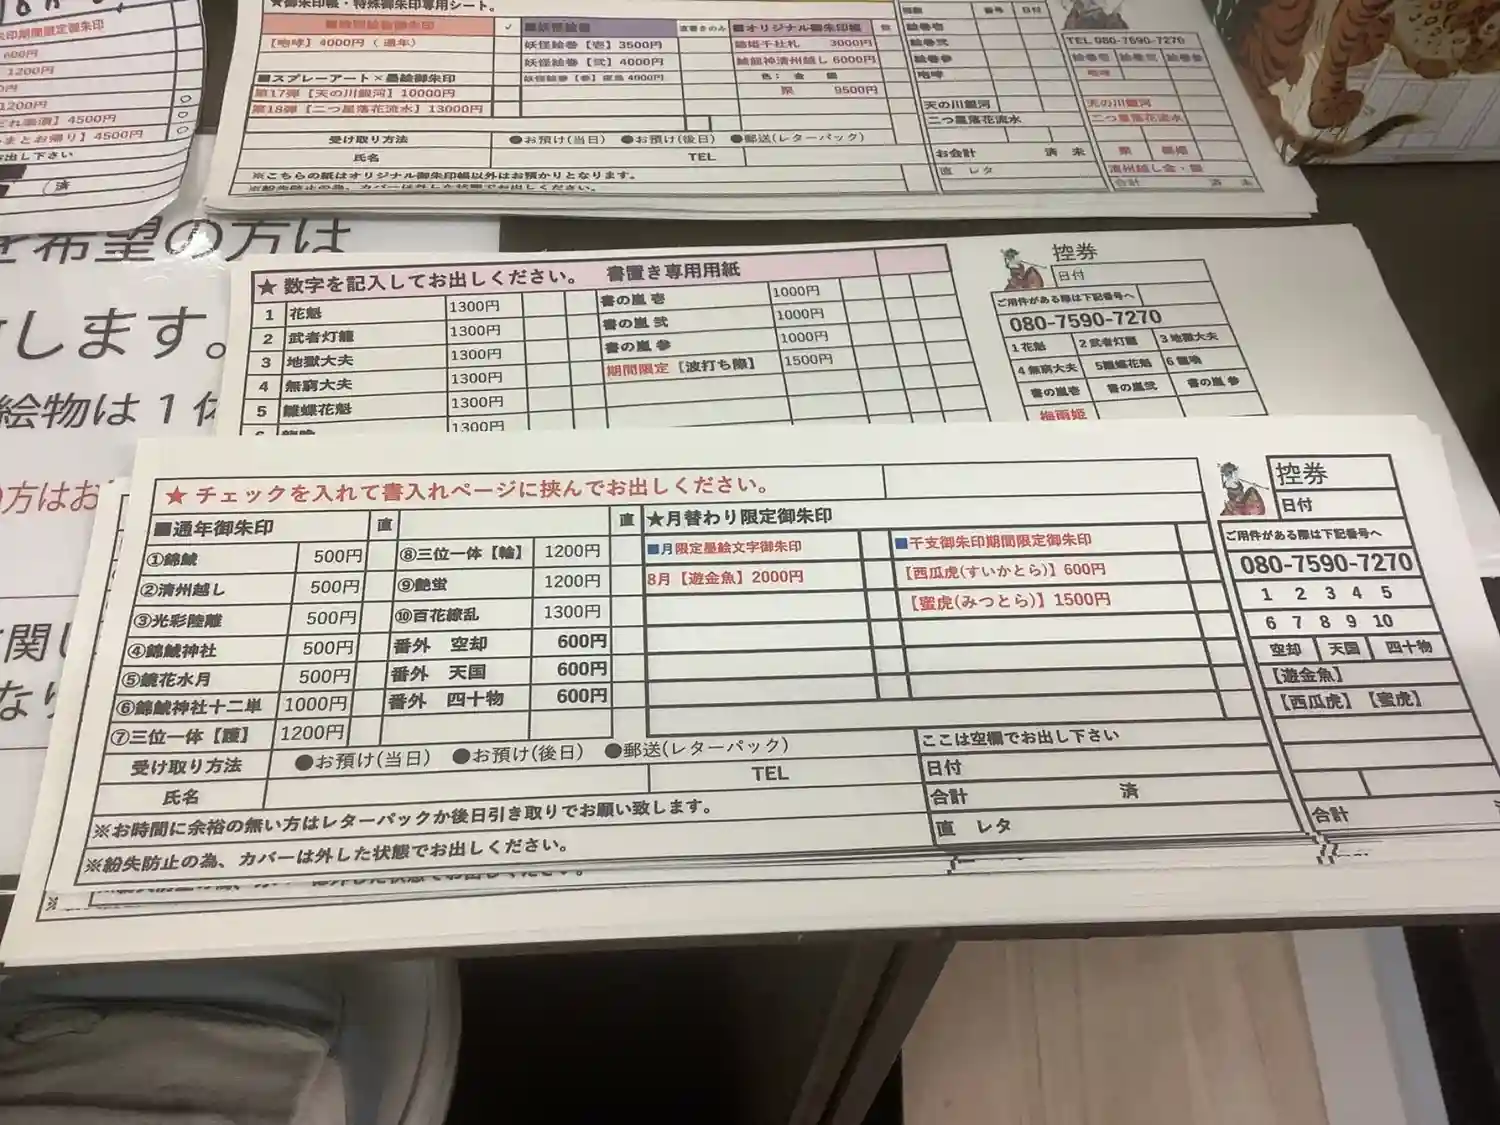 ★御朱印帳・特殊御朱印専用シート。
【咆哮】4000円（通年）
■スプレーアート×墨絵御朱印
第17弾【天の川銀河】10000円
第18弾【二つ星落花流水】13000円
■妖怪絵巻 直書きのみ
妖怪絵巻【壱】3500円
妖怪絵巻【弐】4000円
■オリジナル御朱印帳
3000円
6000円
色：金 銀
黒 9500円
受け取り方法 ●お預け(当日) ●お預け(後日) ●郵送(レターパック)
氏名 TEL
※こちらの紙はオリジナル御朱印帳以外はお預かりとなります。
番号 日付
絵巻壱
絵巻弐
絵巻参
咆哮
天の川銀河
二つ星落花流水
お会計 済 未
直 レタ
TEL 080-7590-7270
絵巻壱 絵巻弐 絵巻参
咆哮
天の川銀河
二つ星落花流水
清州越し金・銀
合計 済 未
朱印期間限定御朱印
600円
1200円
1200円
4500円
まとお帰り】4500円
出し下さい
済
希望の方は
します。
絵物は１体
方はお
関し
なり
★ 数字を記入してお出しください。 書置き専用用紙
1 花魁 1300円
2 武者灯籠 1300円
3 地獄大夫 1300円
4 無窮大夫 1300円
5 雛蝶花魁 1300円
6 1300円
書の嵐 壱 1000円
書の嵐 弐 1000円
書の嵐 参 1000円
期間限定【波打ち際】 1500円
控券
日付
ご用件がある際は下記番号へ
080-7590-7270
1 花魁 2 武者灯籠 3 地獄大夫
4 無窮大夫 5雛蝶花魁 6
書の嵐壱 書の嵐弐 書の嵐 参
梅雨姫
★ チェックを入れて書入れページに挟んでお出しください。
■通年御朱印 直
①錦鯱 500円
②清州越し 500円
③光彩陸離 500円
④錦鯱神社 500円
⑤鏡花水月 500円
⑥錦鯱神社十二単 1000円
⑦三位一体【踵】 1200円
直
⑧三位一体【輪】 1200円
⑨艶蛍 1200円
⑩百花繚乱 1300円
番外 空却 600円
番外 天国 600円
番外 四十物 600円
★月替わり限定御朱印
■月限定墨絵文字御朱印
8月【遊金魚】2000円
■干支御朱印期間限定御朱印
【西瓜虎(すいかとら)】600円
【蜜虎(みつとら)】1500円
受け取り方法 ●お預け(当日) ●お預け(後日) ●郵送(レターパック)
氏名 TEL
※お時間に余裕の無い方はレターパックか後日引き取りでお願い致します。
※紛失防止の為、カバーは外した状態でお出しください。
ここは空欄でお出し下さい
日付
合計 済
直 レタ
控券
日付
ご用件がある際は下記番号へ
080-7590-7270
1 2 3 4 5
6 7 8 9 10
空却 天国 四十物
【遊金魚】
【西瓜虎】【蜜虎】
合計